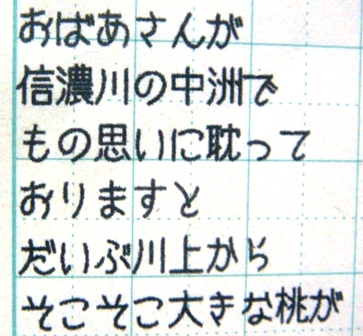 おばあさんが
信濃川の中洲で
もの思いに耽って
おりますと
だいぶ川上から
そこそこ大きな桃が